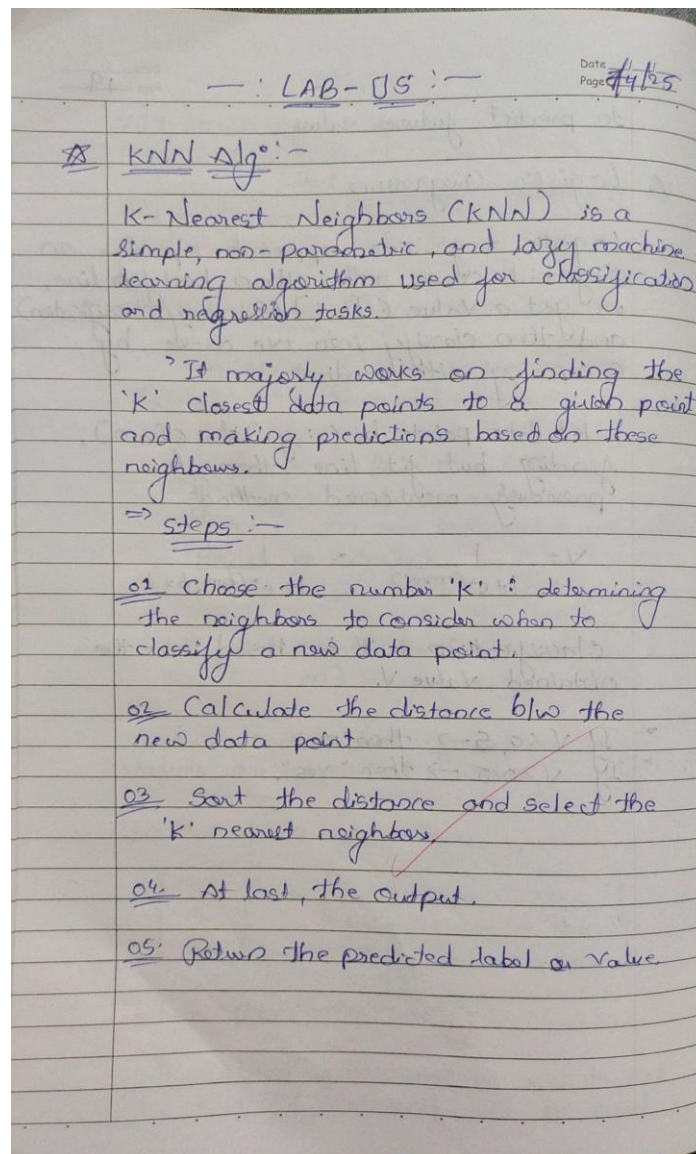 —: LAB-05 :—
Date
Page /4/25
KNN Algo:-
K-Nearest Neighbors (KNN) is a
simple, non-parametric, and lazy machine
learning algorithm used for classification
and regression tasks.
It majorly works on finding the
'K' closest data points to a given point
and making predictions based on these
neighbours.
=> Steps :—
01 Choose the number 'K' : determining
the neighbors to consider when to
classify a new data point.
02 Calculate the distance b/w the
new data point
03 Sort the distance and select the
'K' nearest neighbors.
04. At last, the output.
05. Return the predicted label or value